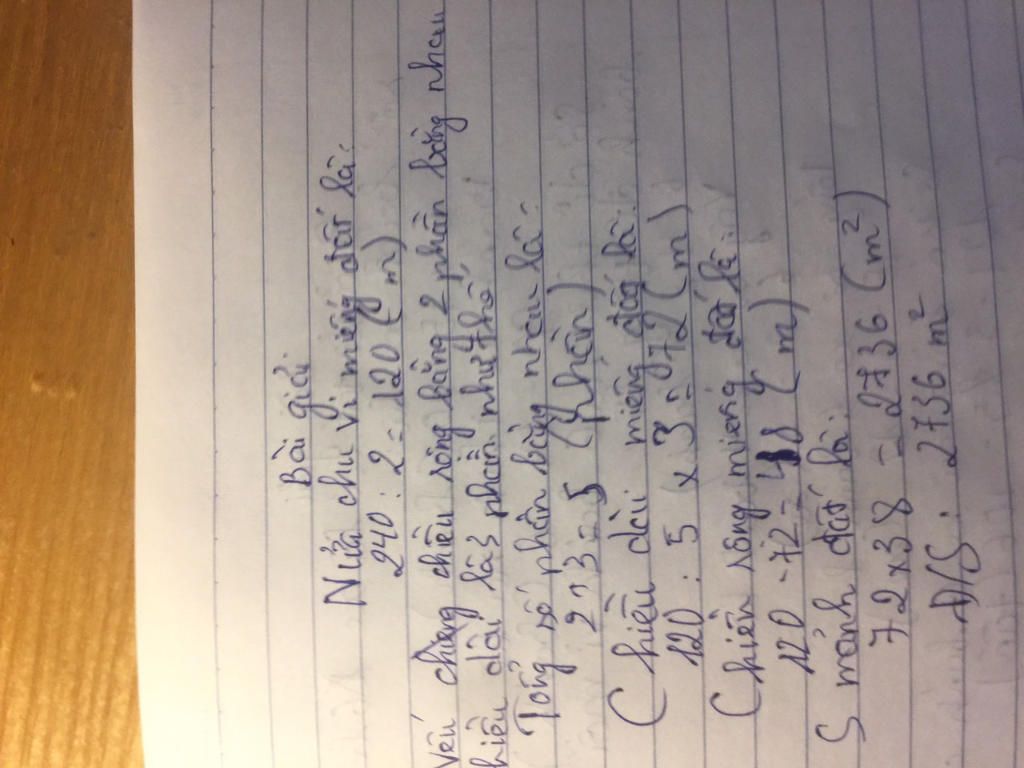 Bài giải
Nửa chu vi miếng đất là:
240 : 2 = 120 (m)
Nếu chiều rộng bằng 2 phần bằng nhau
hiều dài là 3 phần như thế
Tổng số phần bằng nhau là:
2 + 3 = 5 (phần)
Chiều dài miếng đất là:
120 : 5 x 3 = 72 (m)
Chiều rộng miếng đất là:
120 - 72 = 48 (m)
S mảnh đất là:
72 x 38 = 2736 (m²)
Đ/S: 2736 m²